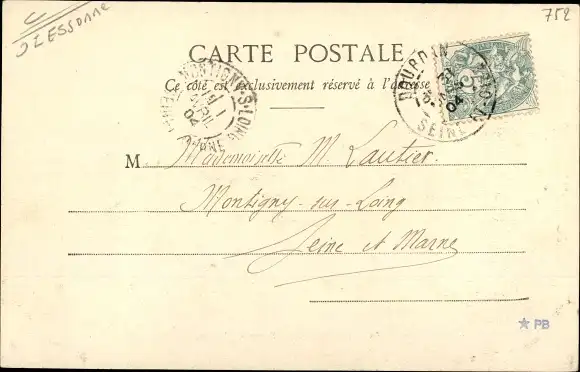 91 ESSONNE
752
CARTE POSTALE
Ce côté est exclusivement réservé à l'adresse
DOURDAN
SEINE-ET-OISE
04
MONTIGNY-S-LOING
SEINE-ET-MARNE
04
M. Mademoiselle M. Lautier.
Montigny-sur-Loing
Seine et Marne
★ PB